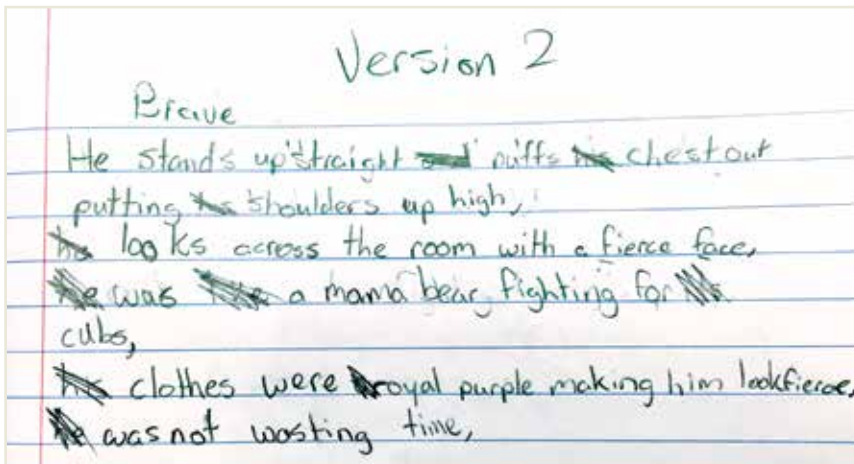 Version 2
Brave
He stands up straight and puffs his chest out
putting his shoulders up high,
his looks across the room with a fierce face,
He was like a mama bear, fighting for his
cubs,
his clothes were royal purple making him look fierce,
He was not wasting time,